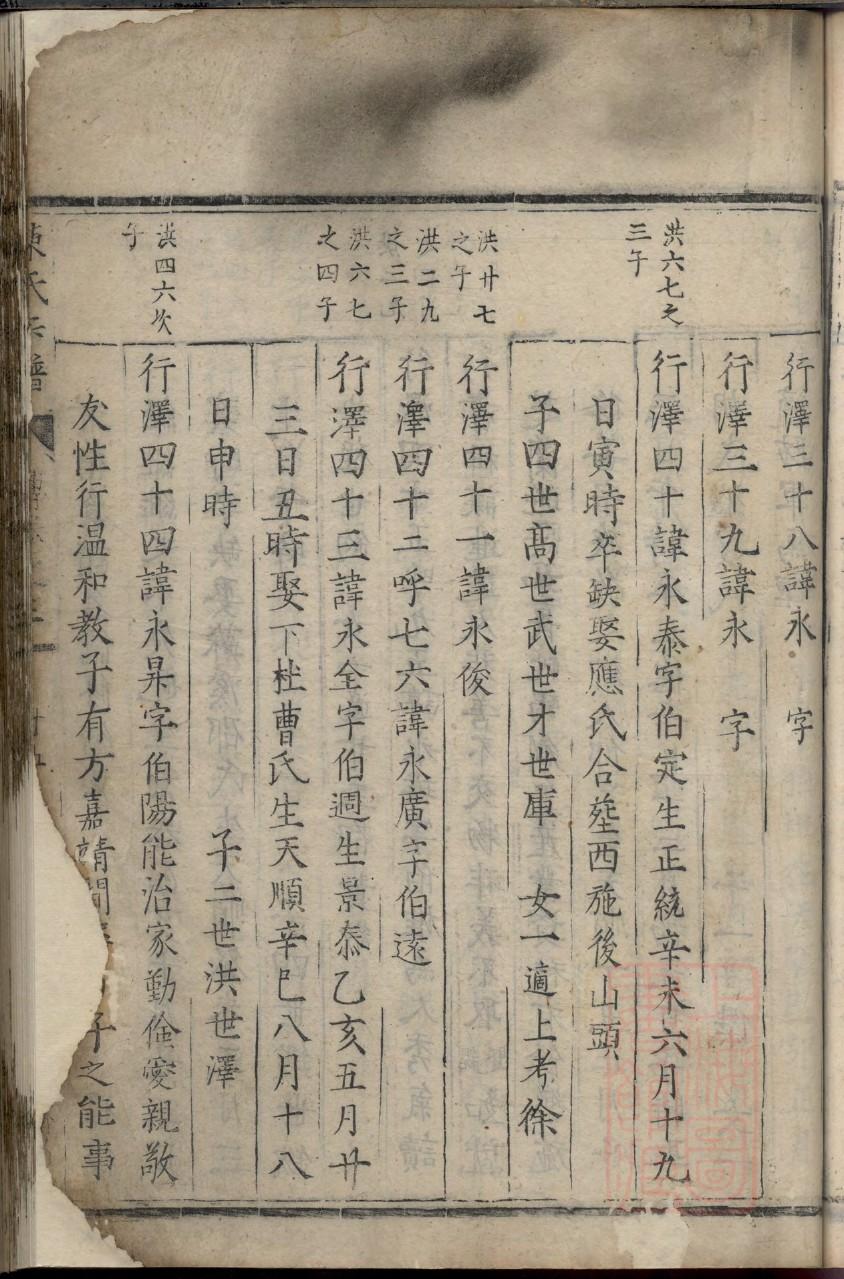 行澤三十八諱永　字
行澤三十九諱永　字
洪六七之
三子
行澤四十諱永泰字伯定生正統辛未六月十九
日寅時卒缺娶應氏合塟西施後山頭
子四世髙世武世才世庫　女一適上考徐
洪廿七
之子
行澤四十一諱永俊
洪二九
之三子
行澤四十二呼七六諱永廣字伯遠
洪六七
之四子
行澤四十三諱永全字伯週生景泰乙亥五月廿
三日丑時娶下杜曹氏生天順辛巳八月十八
日申時　子二世洪世澤
洪四六次
子
行澤四十四諱永昇字伯陽能治家勤儉愛親敬
友性行温和教子有方嘉靖間子之能事
氏譜